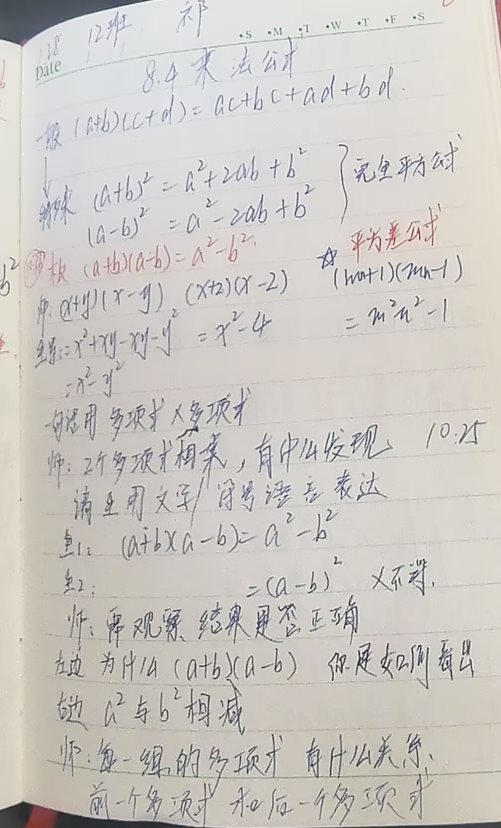 1.28 12班 祁
Date •S •M •T •W •T •F •S
8.4 乘法公式
一般 (a+b)(c+d)=ac+bc+ad+bd.
特殊 (a+b)²=a²+2ab+b²
(a-b)²=a²-2ab+b² 完全平方公式
板 (a+b)(a-b)=a²-b². ☆平方差公式
师:(x+y)(x-y) (x+2)(x-2) (mn+1)(mn-1)
生1:=x²+xy-xy-y² =x²-4 =m²n²-1
=x²-y²
运用多项式×多项式
师:2个多项式相乘,有什么发现 10:25
请生用文字/符号语言表达
生1: (a+b)(a-b)=a²-b²
生2: =(a-b)² ×不对.
师:再观察结果是否正确
左边为什么(a+b)(a-b) 你是如何看出
右边 a²与b²相减
师:每一组的多项式有什么关系.
前一个多项式和后一个多项式